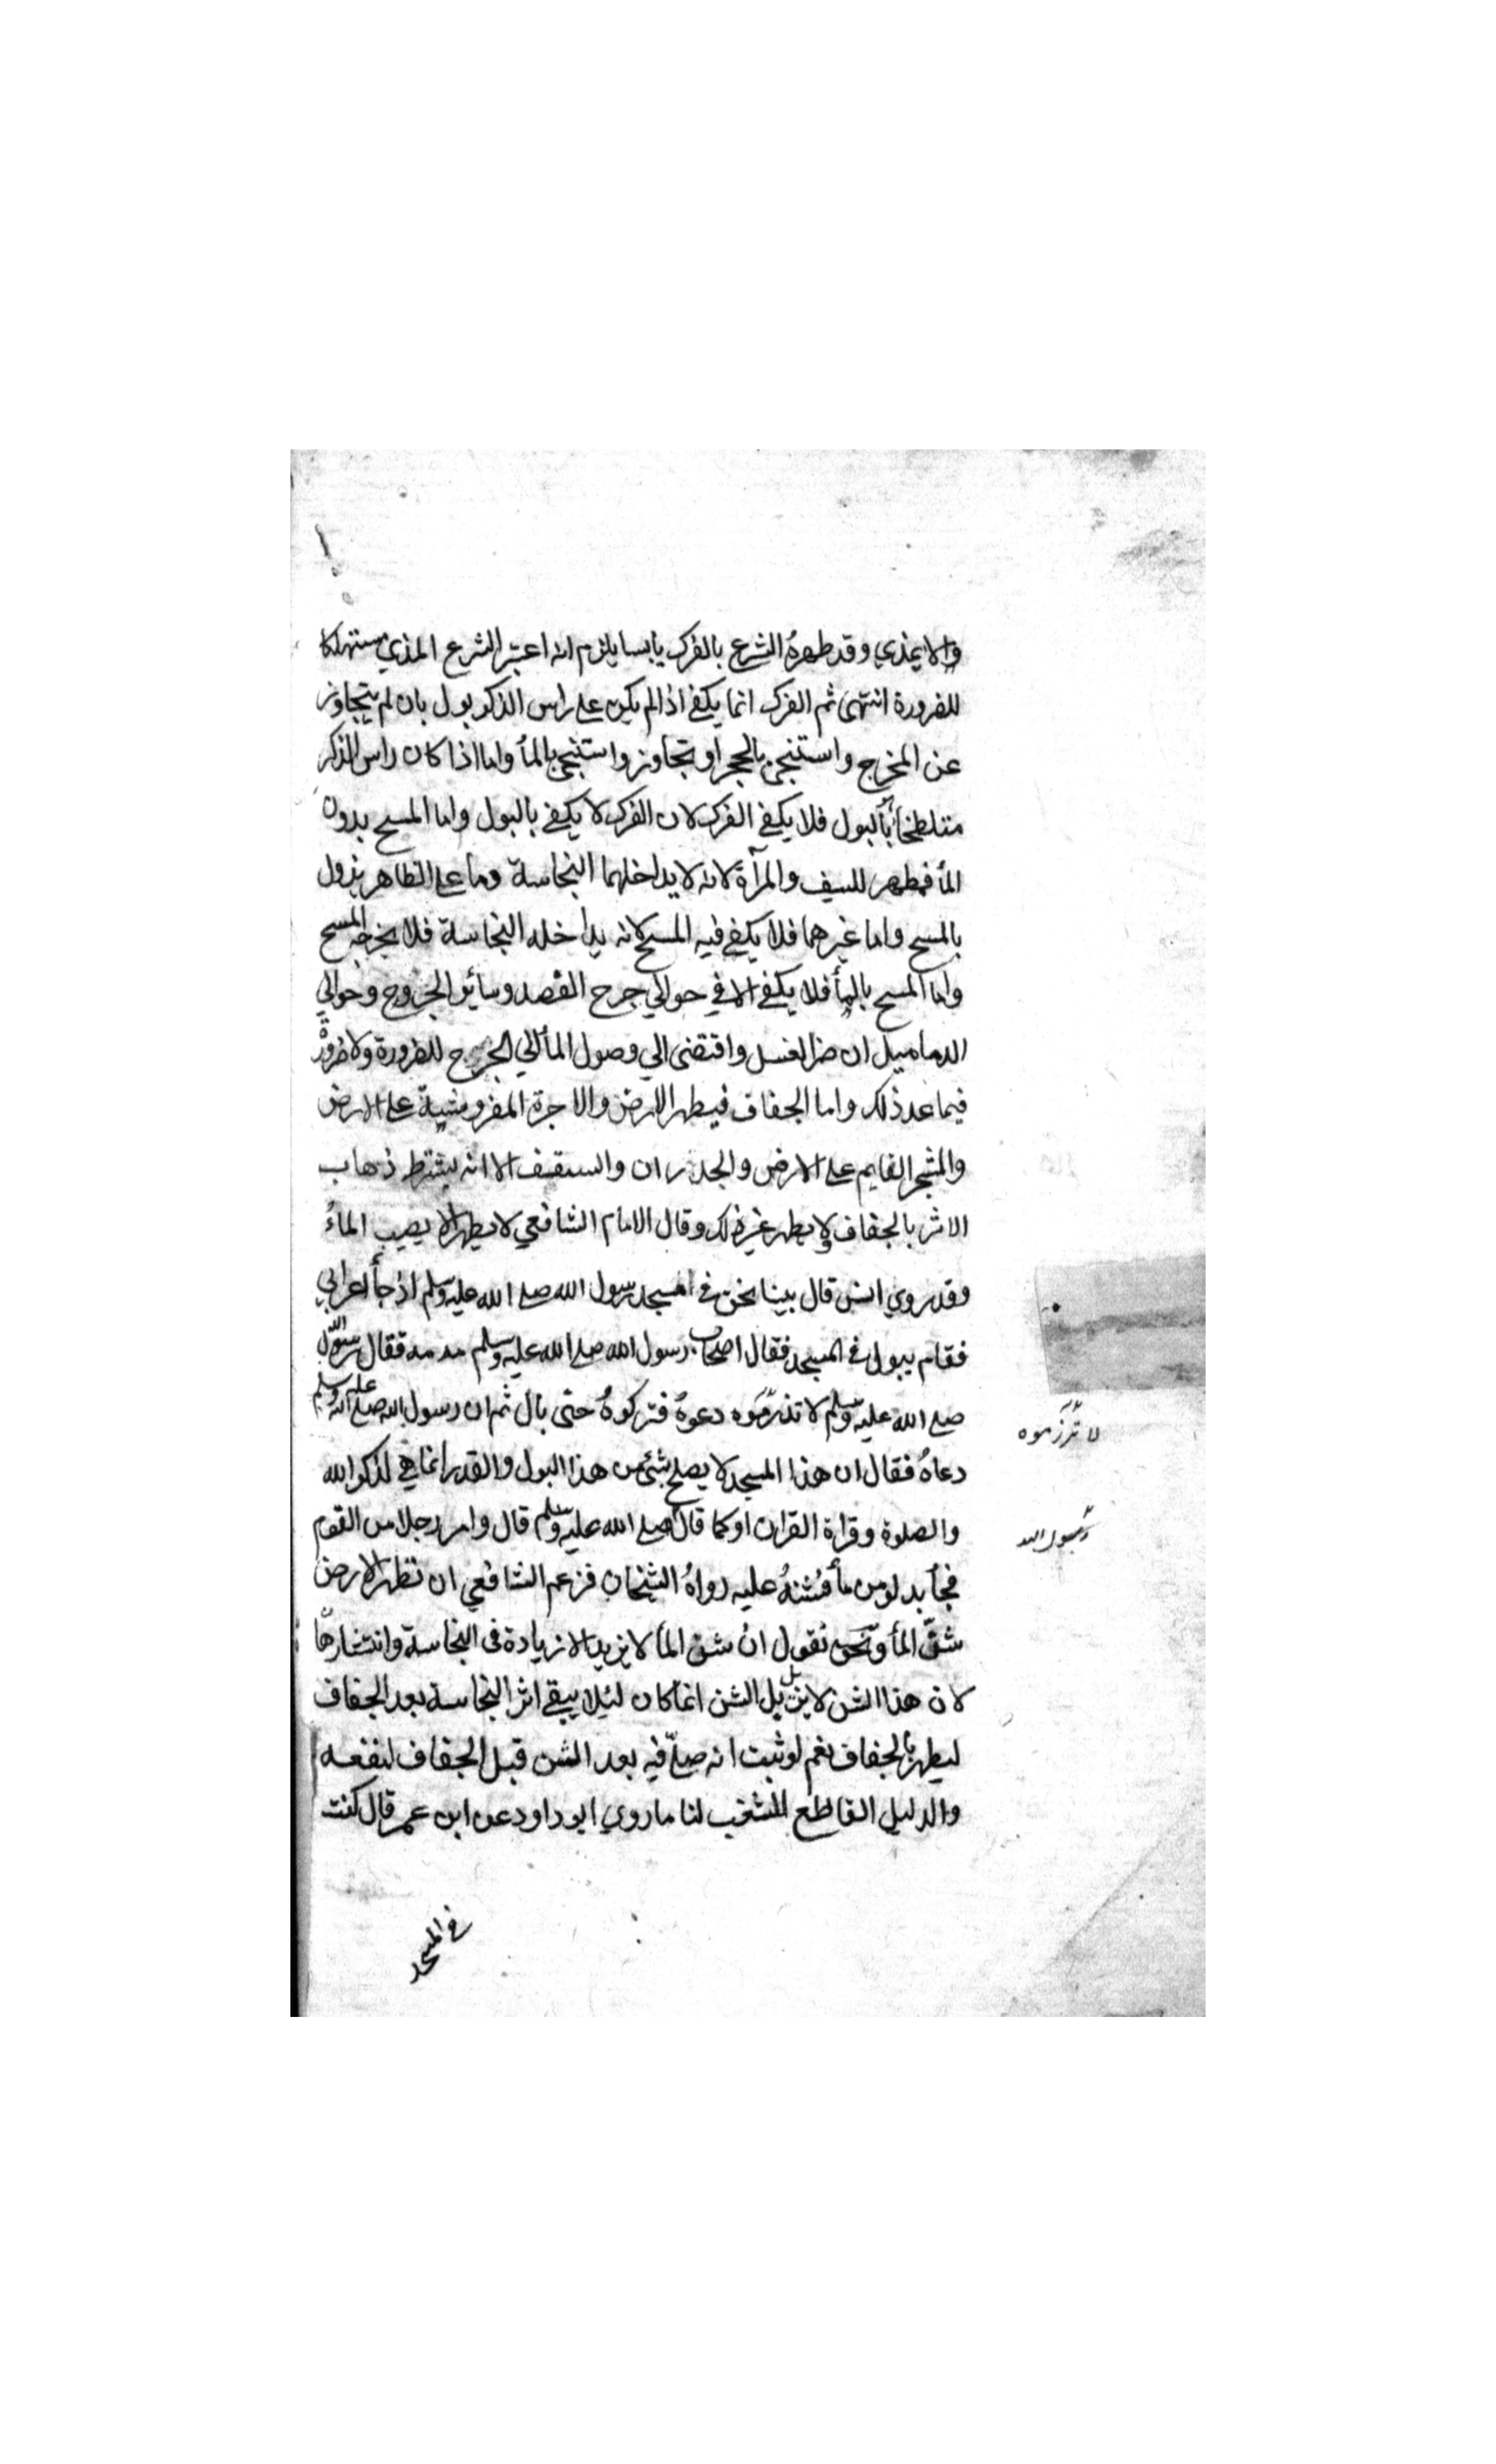 والا يمذي وقد طهره الشرع بالفرك يابسا يلزم انه اعتبر الشرع المذي مستهلكا
للضرورة انتهى ثم الفرك انما يكفي اذا لم يكن على راس الذكر بول بان لم يتجاوز
عن المخرج واستنجى بالحجر او تجاوز واستنجى بالمأ واما اذا كان راس الذكر
متلطخا بالبول فلا يكفي الفرك لان الفرك لا يكفي بالبول واما المسح بدون
المأ فمطهر للسيف والمرآة لانه لا يداخلهما النجاسة وما على الظاهر يزول
بالمسح واما غيرهما فلا يكفي فيه المسح لانه يداخله النجاسة فلا يخرجه المسح
واما المسح بالمأ فلا يكفي الا في حوالي جرح الفصد وسائر الجروح وحوالي
الدماميل ان ضر الغسل واقتضى الي وصول المأ الي الجرح للضرورة ولا ضرورة
فيما عد ذلك واما الجفاف فيطهر الارض والاجرة المفروشة على الارض
والشجر القايم على الارض والجدران والسقف الا انه يشترط ذهاب
الاثر بالجفاف ولا يطهر غير ذلك وقال الامام الشافعي لا يطهر الا يصيب الماءُ
وقد روي انس قال بينا نحن في المسجد رسول الله صلى الله عليه وسلم اذ جأ اعرابي
فقام يبول في المسجد فقال اصحاب رسول الله صلى الله عليه وسلم مه مه فقال رسول الله
صلى الله عليه وسلم لا تذرموه دعوهُ فتركوهُ حتى بال ثم ان رسول الله صلى الله عليه وسلم
لا تزرموه
دعاهُ فقال ان هذا المسجد لا يصلح بشئ من هذا البول والقذر انما هي لذكر الله
والصلوة وقراة القران او كما قال صلى الله عليه وسلم قال وامر رجلا من القوم
رسول الله
فجأ بدلو من مأ فشنهُ عليه رواهُ الشيخان فزعم الشافعي ان تطهر الارض
شنّ المأ ونحن نقول ان شن المأ لا يزيد الا زيادة في النجاسة وانتشارها
لان هذا الشن لا يزيل بل الشن انما كان لئلا يبقى اثر النجاسة بعد الجفاف
ليطهر بالجفاف نعم لو ثبت انه صلّى فيه بعد الشن قبل الجفاف لنفعه
والدليل القاطع للشغب لنا ما روي ابو داود عن ابن عمر قال كنت
في المسجد